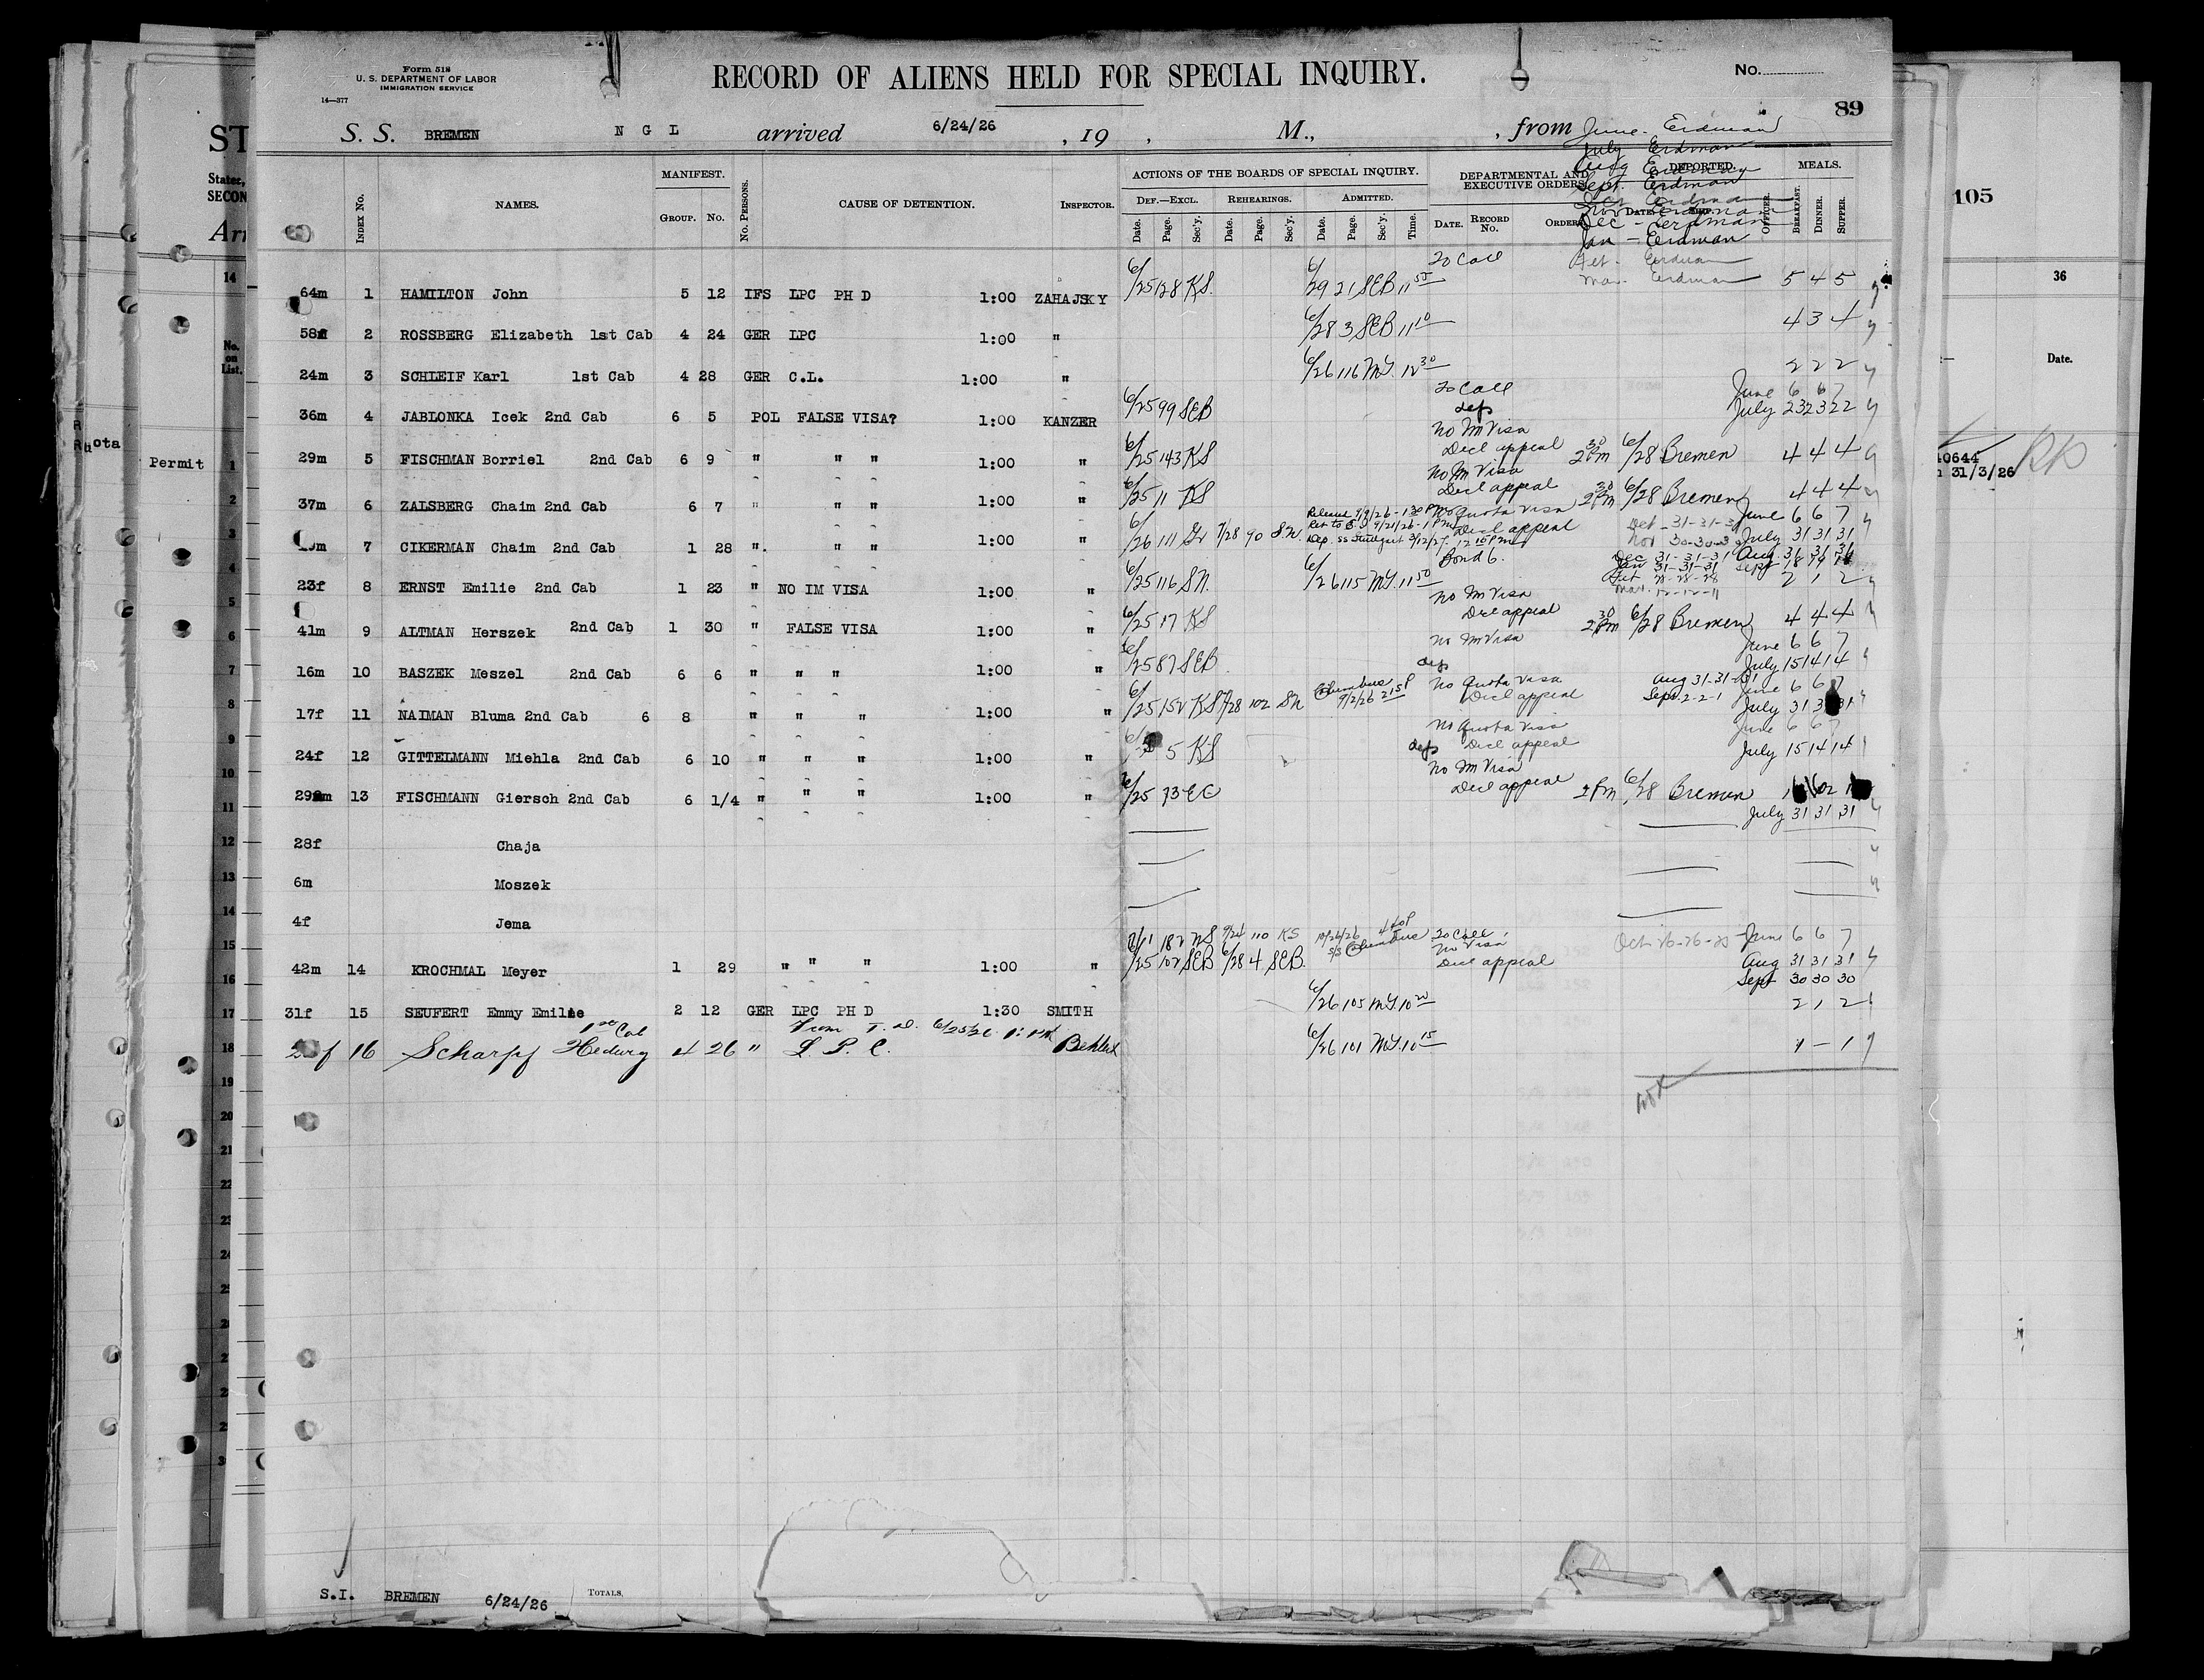 Form 518
U. S. DEPARTMENT OF LABOR
IMMIGRATION SERVICE
14—377
RECORD OF ALIENS HELD FOR SPECIAL INQUIRY.
No.
89
S. S. BREMEN N G L arrived 6/24/26 , 19 , M., , from June - Erdman
July Erdman
Aug Erdman
Sept. Erdman
Nov Erdman
Dec - Erdman
Jan - Erdman
Feb - Erdman
Mar. Erdman
INDEX NO. NAMES. MANIFEST. GROUP. NO. NO. PERSONS. CAUSE OF DETENTION. INSPECTOR.
ACTIONS OF THE BOARDS OF SPECIAL INQUIRY.
DEF.—EXCL. REHEARINGS. ADMITTED.
Date. Page. Sec'y. Date. Page. Sec'y. Date. Page. Sec'y. Time.
DEPARTMENTAL AND EXECUTIVE ORDERS
DATE. RECORD NO. ORDER
DEPORTED.
DATE OFFICER.
MEALS.
BREAKFAST. DINNER. SUPPER.
To Call
64m 1 HAMILTON John 5 12 IFS LPC PH D 1:00 ZAHAJSKY 6/25 128 KS. 6/29 21 SEB 11 55 5 4 5
58f 2 ROSSBERG Elizabeth 1st Cab 4 24 GER LPC 1:00 " 6/28 3 SEB 11 10 4 3 4
24m 3 SCHLEIF Karl 1st Cab 4 28 GER C.L. 1:00 " 6/26 116 MY. 12 30 2 2 2
To Call June 6 6 7
36m 4 JABLONKA Icek 2nd Cab 6 5 POL FALSE VISA? 1:00 KANZER 6/25 99 SEB defs July 23 23 22
No Im Visa
29m 5 FISCHMAN Borriel 2nd Cab 6 9 " " " 1:00 " 6/25 143 KS Decl appeal 2 30 Pm 6/28 Bremen 4 4 4
No Im Visa
37m 6 ZALSBERG Chaim 2nd Cab 6 7 " " " 1:00 " 6/25 11 KS Decl appeal 2 30 Pm 6/28 Bremen 4 4 4
No Quota Visa June 6 6 7
7 CIKERMAN Chaim 2nd Cab 1 28 " " " 1:00 " 6/26 111 7/28 90 S.N. Decl appeal July 31 31 31
Dep. SS Stuttgart 3/12/27. 12 15 Pm
Bond 6.
Nov 30-30-3
Dec 31-31-31 Aug. 31 31 31
Jan 31-31-31 Sept 18 19 18
Feb 28-28-28
Mar. 12-12-11
23f 8 ERNST Emilie 2nd Cab 1 23 " NO IM VISA 1:00 " 6/25 116 SN. 6/26 115 MY. 11 50 2 1 2
No Im Visa
41m 9 ALTMAN Herszek 2nd Cab 1 30 " FALSE VISA 1:00 " 6/25 17 KS Decl appeal 2 30 Pm 6/28 Bremen 4 4 4
No Im Visa June 6 6 7
16m 10 BASZEK Meszel 2nd Cab 6 6 " " " 1:00 " 6/25 87 SEB defs July 15 14 14
Columbus 9/2/26 2 15 P No Quota Visa Aug 31-31-31 June 6 6 7
17f 11 NAIMAN Bluma 2nd Cab 6 8 " " " 1:00 " 6/25 152 KS 7/28 102 SN Decl appeal Sept. 2-2-1 July 31 3 31
No Quota Visa June 6 6 7
24f 12 GITTELMANN Miehla 2nd Cab 6 10 " " " 1:00 " 5 KS defs Decl appeal July 15 14 14
No Im Visa
29m 13 FISCHMANN Giersch 2nd Cab 6 1/4 " " " 1:00 " 6/25 73 EC Decl appeal 2 Pm 6/28 Bremen
July 31 31 31
28f Chaja
6m Moszek
4f Jema
182 9/24 110 KS 10/26/26 S/S Columbus To Call. Oct. 26-26-25 June 6 6 7
42m 14 KROCHMAL Meyer 1 29 " " " 1:00 " 6/25 102 SEB 6/28 4 SEB. No Visa Decl appeal Aug 31 31 31
Sept 30 30 30
31f 15 SEUFERT Emmy Emilie 2 12 GER LPC PH D 1:30 SMITH 6/26 105 MY. 10 20 2 1 2
1st Cab from T. D. 6/25/26
f 16 Scharpf Hedwig 4 26 " L. P. C. 6/26 101 MY. 10 15 1 - 1
S.I. BREMEN 6/24/26 TOTALS.
105
36
Date.
10644
31/3/26
Permit
Quota